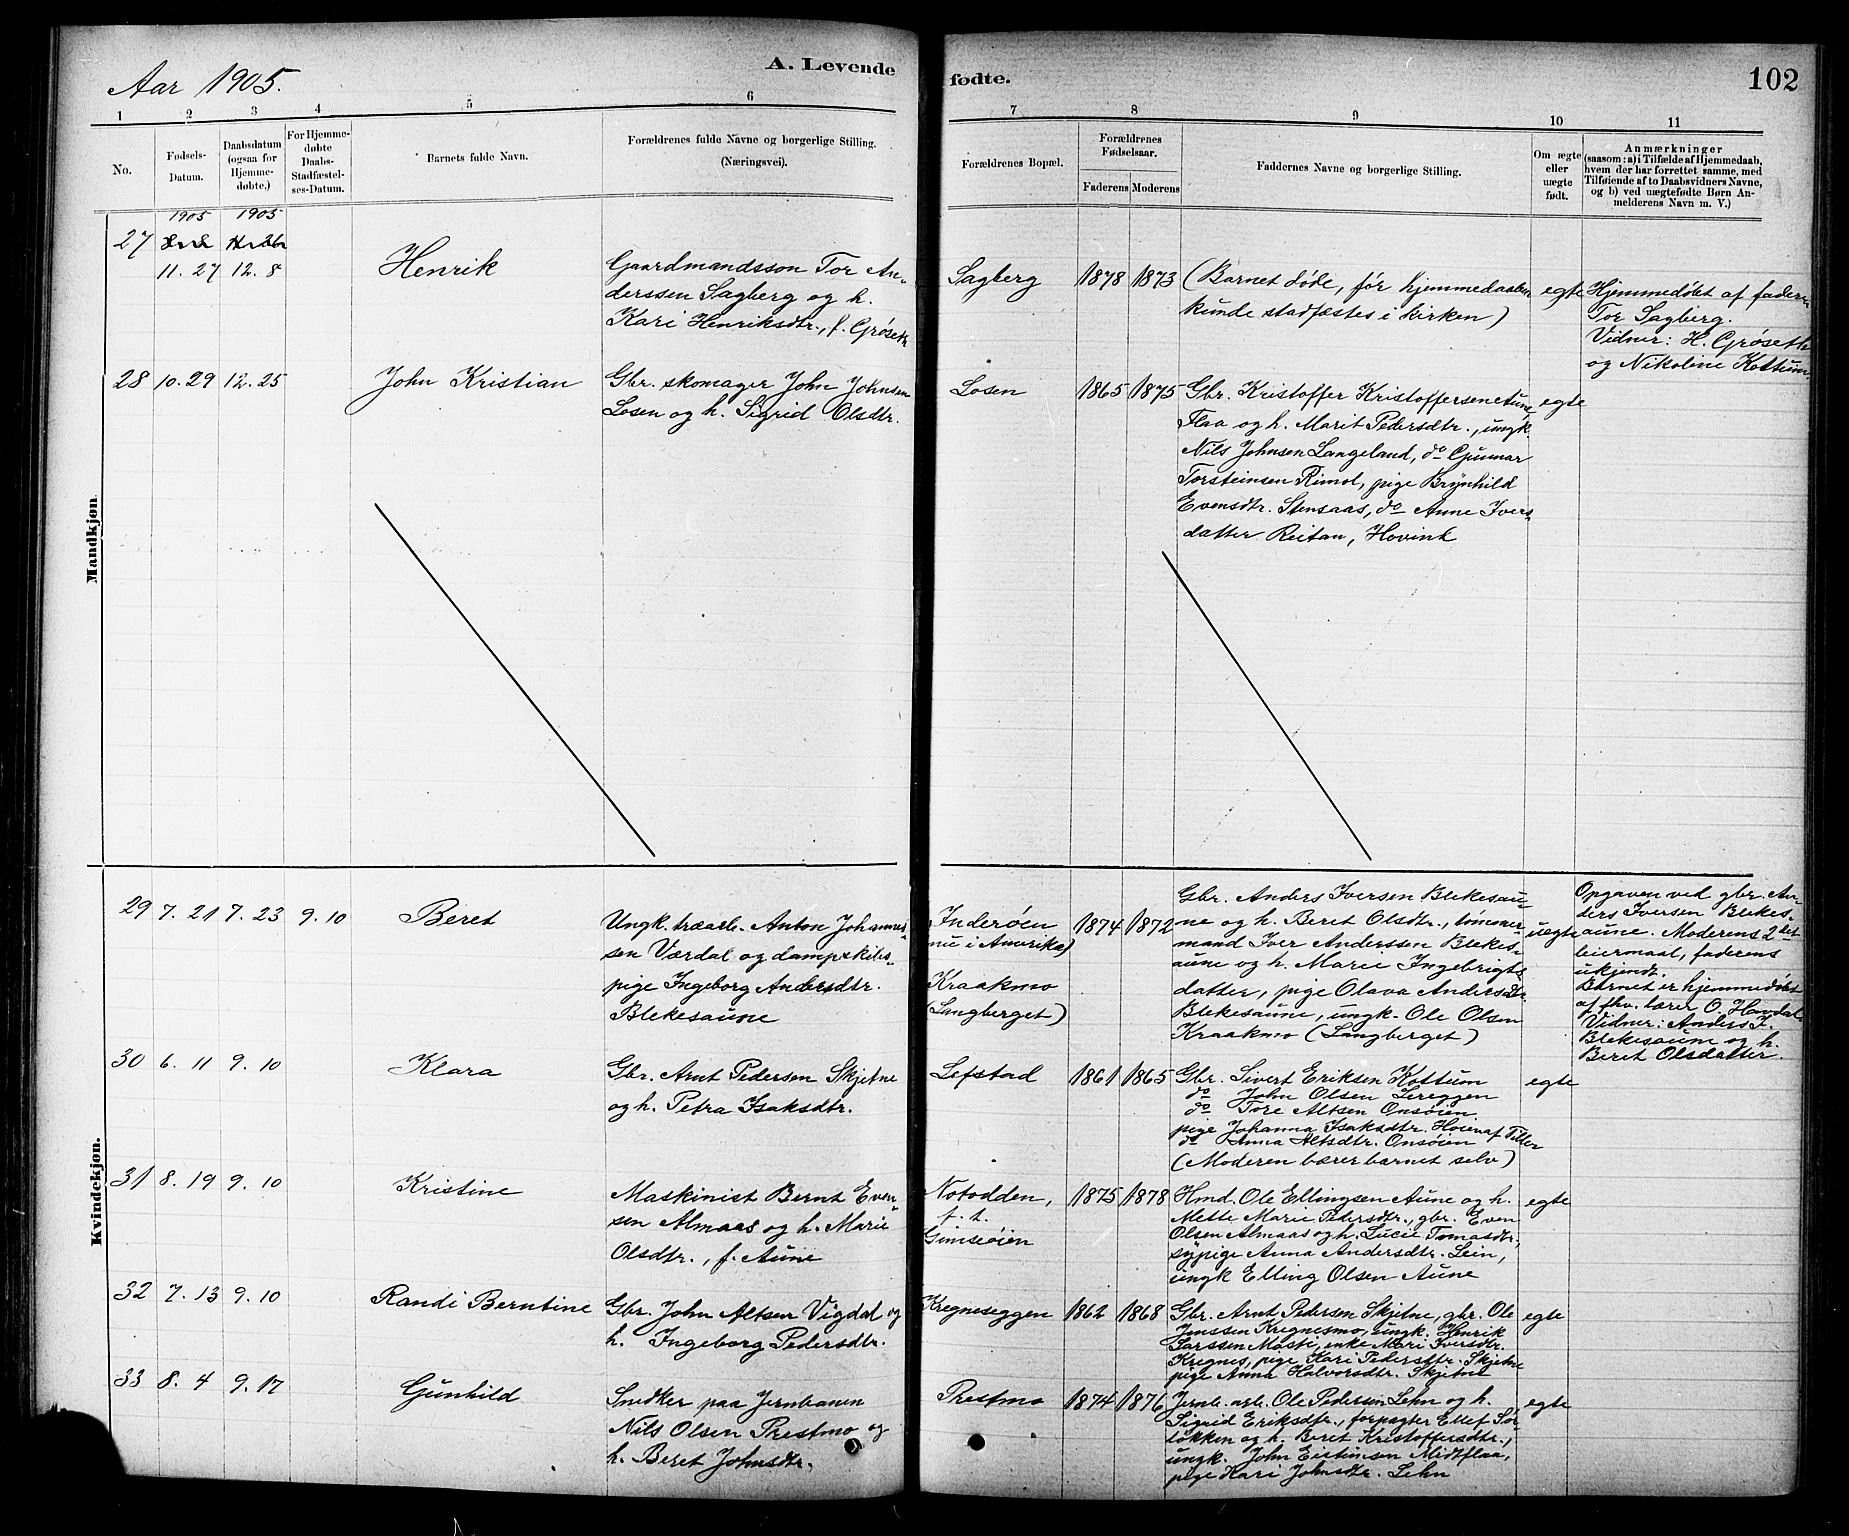 Aar 1905.
A. Levende
fødte.
102
1 2 3 4 5 6 7 8 9 10 11
No.
Fødsels-
Datum.
Daabsdatum
(ogsaa for
Hjemme-
døbte.)
For Hjemme-
døbte
Daabs-
Stadfæstel-
ses-Datum.
Barnets fulde Navn.
Forældrenes fulde Navne og borgerlige Stilling.
(Næringsvei).
Forældrenes Bopæl.
Forældrenes
Fødselsaar.
Faderens Moderens
Faddernes Navne og borgerlige Stilling.
Om ægte
eller
uægte
født.
Anmærkninger
(saasom: a) i Tilfælde af Hjemmedaab,
hvem der har forrettet samme, med
Tilføiende af to Daabsvidners Navne,
og b) ved uægtefødte Børn An-
melderens Navn m. V.)
Mandkjøn.
1905 1905
27
11. 27 12. 8
Henrik
Gaardmandsson Tor An-
derssen Sagberg og h.
Kari Henriksdtr., f. Grøseth
Sagberg
1878 1873
(Barnet døde, før hjemmedaaben
kunde stadfæstes i kirken)
egte
Hjemmedøbt af faderen
Tor Sagberg.
Vidner: H. Grøseth
og Nikoline Kottum.
28 10. 29 12. 25
John Kristian
Gbr. skomager John Johnsen
Losen og h. Sigrid Olsdtr.
Losen
1865 1875
Gbr. Kristoffer Kristoffersen Aune
Flaa og h. Marit Pedersdtr., ungk.
Nils Johnsen Langeland, do Gunnar
Torsteinsen Rimol, pige Brynhild
Evensdtr. Stensaas, do Anne Ivers-
datter Reitan, Hovink
egte
Kvindekjøn.
29 7. 21 7. 23 9. 10
Beret
Ungk. træarb. Anton Johannes-
sen Værdal og dampskibs-
pige Ingeborg Andersdtr.
Blekesaune
Inderøen
nu i Amerika)
Kraakmo
(Langberget)
1874 1872
Gbr. Anders Iversen Blekesau-
ne og h. Beret Olsdtr., tømmer-
mand Iver Anderssen Blekes-
aune og h. Marie Ingebrigts-
datter, pige Olava Andersdtr.
Blekesaune, ungk. Ole Olsen
Kraakmo (Langberget)
uegte
Opgaven ved gbr. An-
ders Iversen Blekes-
aune. Moderens 2det
leiermaal, faderens
ukjendt.
Barnet er hjemmedøbt
af fhv. lærer O. Hovdal.
Vidner: Anders I.
Blekesaune og h.
Beret Olsdatter.
30 6. 11 9. 10
Klara
Gbr. Arnt Pedersen Skjetne
og h. Petra Isaksdtr.
Lefstad
1861 1865
Gbr. Sivert Eriksen Kottum
do John Olsen Lereggen
do Tore Altsen Onsøien
pige Johanna Isaksdtr. Hoien af Tiller
do Anna Altsdtr. Onsøien
(Moderen bærer barnet selv)
egte
31 8. 19 9. 10
Kristine
Maskinist Bernt Even-
sen Almaas og h. Marie
Olsdtr., f. Aune
Notodden,
f. t.
Gimseøien
1875 1878
Hmd. Ole Ellingsen Aune og h.
Mette Marie Pedersdtr., gbr. Even
Olsen Almaas og h. Lucie Tomasdtr.,
sypige Anna Andersdtr. Lein,
ungk Elling Olsen Aune
egte
32 7. 13 9. 10
Randi Berntine
Gbr. John Altsen Vigdal og
h. Ingeborg Pedersdtr.
Kregneseggen
1862 1868
Gbr. Arnt Pedersen Skjetne, gbr. Ole
Jenssen Kregnesmo, ungk. Henrik
Larssen Masti, enke Mari Iversdtr.
Kregnes, pige Kari Pedersdtr. Skjetne
pige Anna Halvorsdtr. Skjetne
egte
33 8. 4 9. 17
Gunhild
Snedker paa Jernbanen
Nils Olsen Prestmo og
h. Beret Johnsdtr.
Prestmo
1874 1876
Jernb. arb. Ole Pedersen Lehn og h.
Sigrid Eriksdtr., forpagter Ellef Sør-
løkken og h. Beret Kristoffersdtr.,
ungk. John Eistensen Midtflaa,
pige Kari Johnsdtr. Lehn
egte